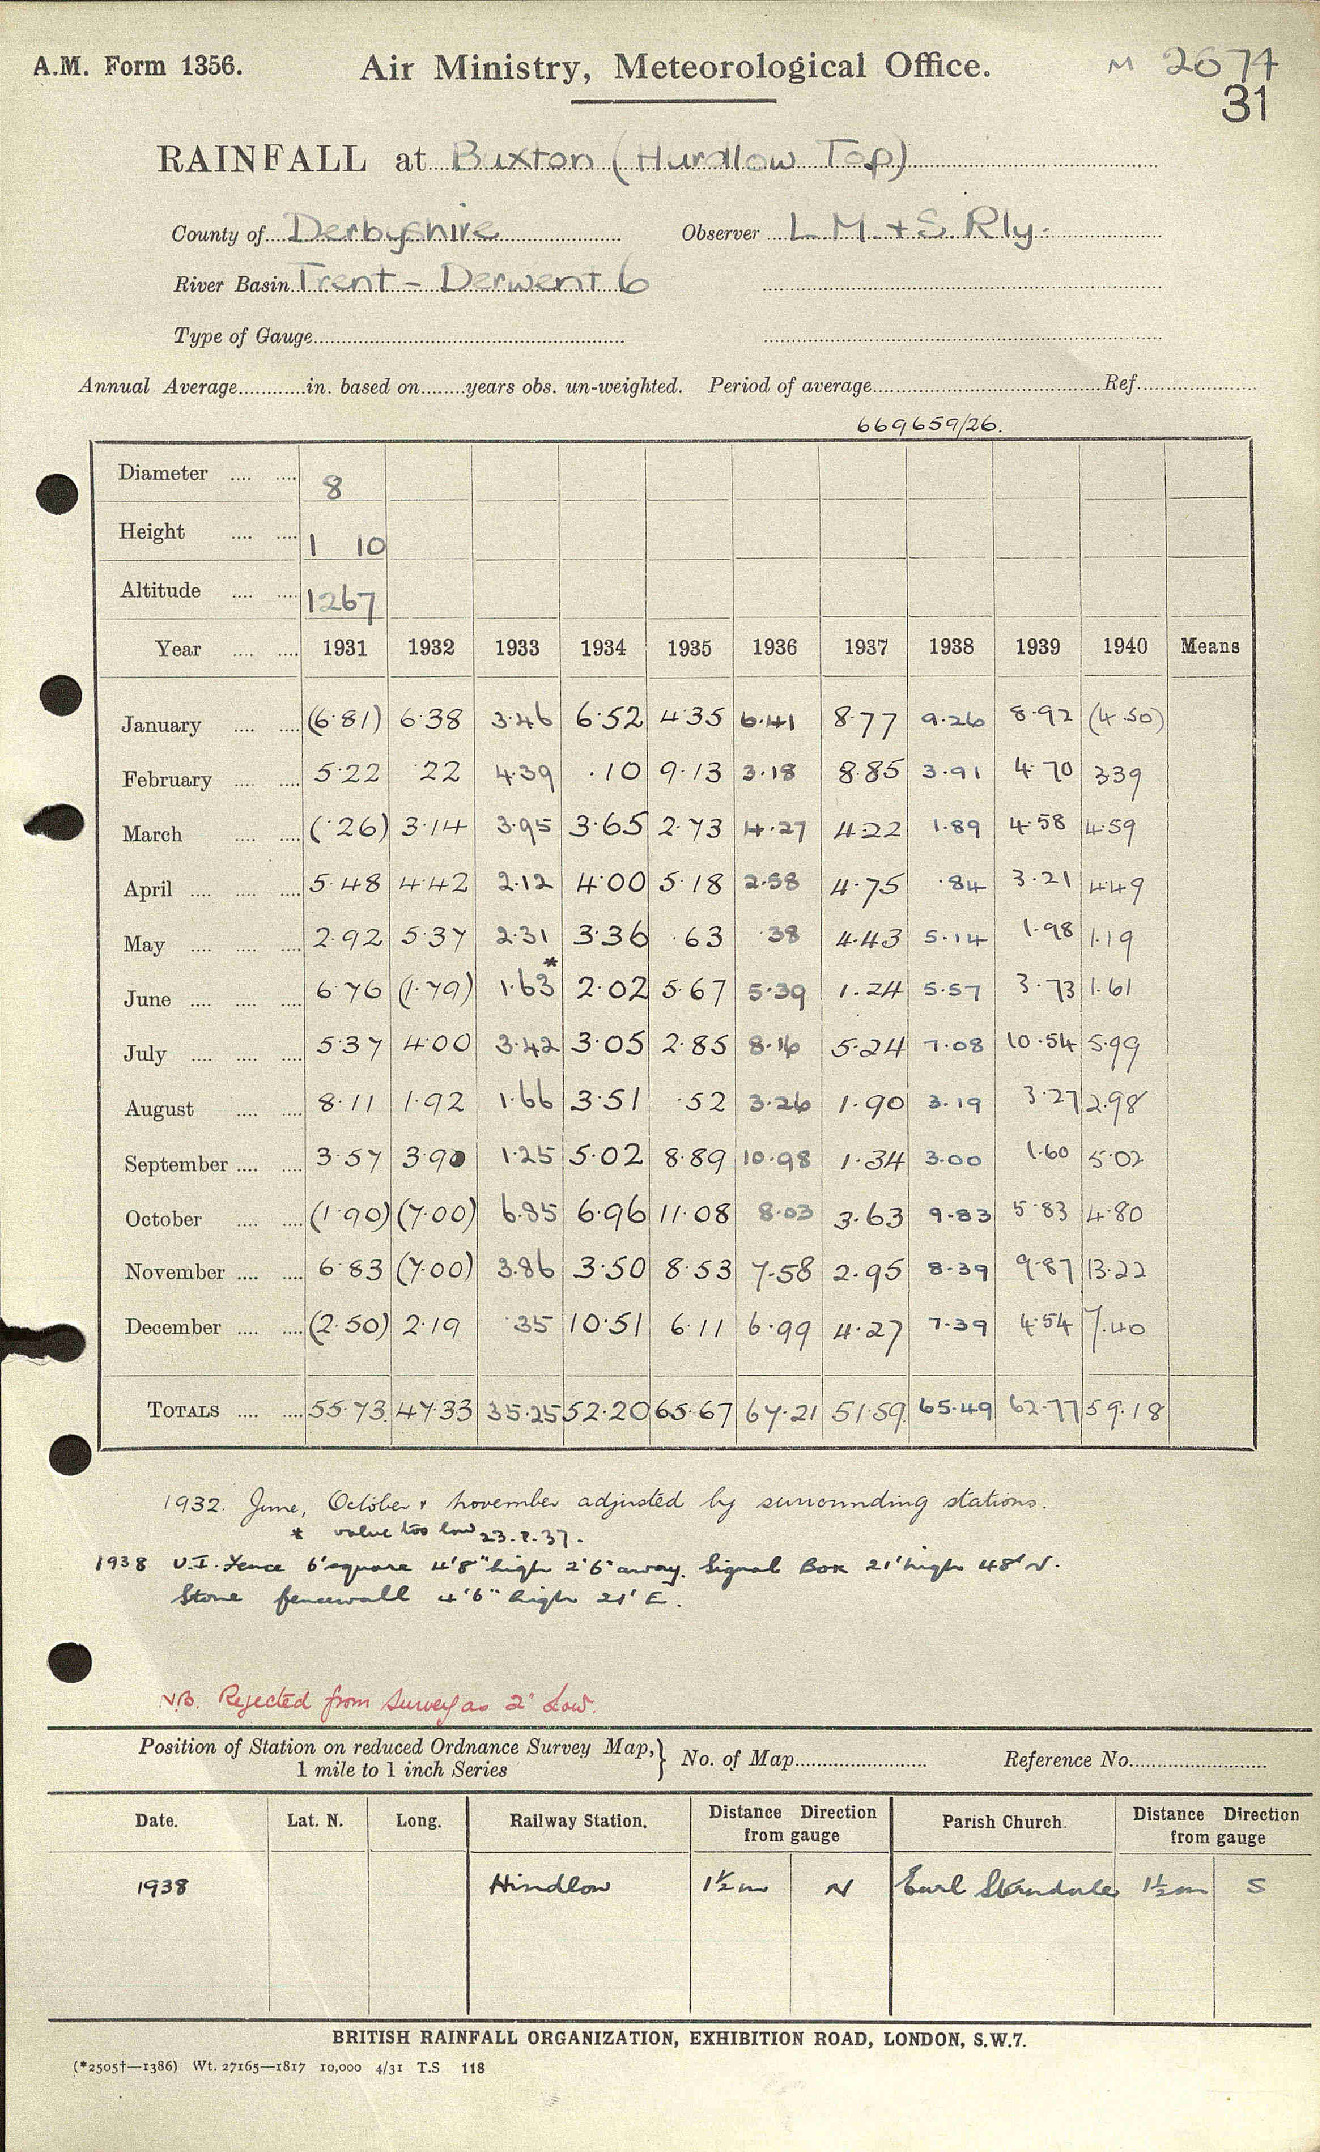 A.M. Form 1356. Air Ministry, Meteorological Office. M 2674
31
RAINFALL at Buxton (Hurdlow Top)
County of Derbyshire Observer L M + S Rly.
River Basin Trent - Derwent 6
Type of Gauge
Annual Average in. based on years obs. un-weighted. Period of average Ref.
669659/26.
Diameter 8
Height 1 10
Altitude 1267
Year 1931 1932 1933 1934 1935 1936 1937 1938 1939 1940 Means
January (6.81) 6.38 3.46 6.52 4.35 6.41 8.77 9.26 8.92 (4.50)
February 5.22 .22 4.39 .10 9.13 3.18 8.85 3.91 4.70 3.39
March (.26) 3.14 3.95 3.65 2.73 4.27 4.22 1.89 4.58 4.59
April 5.48 4.42 2.12 4.00 5.18 2.58 4.75 .84 3.21 4.49
May 2.92 5.37 2.31 3.36 .63 .38 4.43 5.14 1.98 1.19
June 6.76 (1.79) 1.63* 2.02 5.67 5.39 1.24 5.57 3.73 1.61
July 5.37 4.00 3.42 3.05 2.85 8.16 5.24 7.08 10.54 5.99
August 8.11 1.92 1.66 3.51 .52 3.26 1.90 3.19 3.27 2.98
September 3.57 3.90 1.25 5.02 8.89 10.98 1.34 3.00 1.60 5.02
October (1.90) (7.00) 6.85 6.96 11.08 8.03 3.63 9.83 5.83 4.80
November 6.83 (7.00) 3.86 3.50 8.53 7.58 2.95 8.39 9.87 13.22
December (2.50) 2.19 .35 10.51 6.11 6.99 4.27 7.39 4.54 7.40
TOTALS 55.73 47.33 35.25 52.20 65.67 67.21 51.59 65.49 62.77 59.18
1932. June, October & November adjusted by surrounding stations.
* value too low 23.2.37.
1938 U.I. Fence 6' square 4'8" high 2'6" away. Signal Box 21' high 48' N.
Stone fencewall 4'6" high 21' E.
N.B. Rejected from Survey as 2" Low.
Position of Station on reduced Ordnance Survey Map, } No. of Map Reference No.
1 mile to 1 inch Series
Date. Lat. N. Long. Railway Station. Distance Direction from gauge Parish Church. Distance Direction from gauge
1938 Hindlow 1½ m N Earl Sterndale 1½ m S
BRITISH RAINFALL ORGANIZATION, EXHIBITION ROAD, LONDON, S.W.7.
(*2505†—1386) Wt. 27165—1817 10,000 4/31 T.S 118